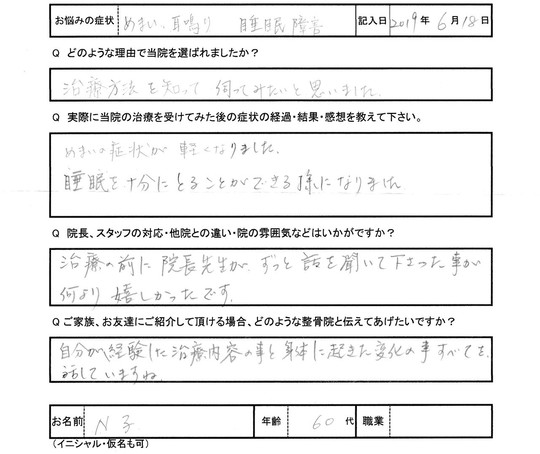 お悩みの症状 めまい、耳鳴り 睡眠障害 記入日 2019年 6月18日
Q どのような理由で当院を選ばれましたか？
治療方法を知って 伺ってみたいと思いました。
Q 実際に当院の治療を受けてみた後の症状の経過・結果・感想を教えて下さい。
めまいの症状が 軽くなりました。
睡眠を十分にとることができる様になりました
Q 院長、スタッフの対応・他院との違い・院の雰囲気などはいかがですか？
治療の前に 院長先生が ずっと 話を聞いて下さった事が
何より 嬉しかったです。
Q ご家族、お友達にご紹介して頂ける場合、どのような整骨院と伝えてあげたいですか？
自分が経験した治療内容の事と身体に起きた変化の事すべてを、
話していますね。
お名前 N子 年齢 60代 職業
（イニシャル・仮名も可）